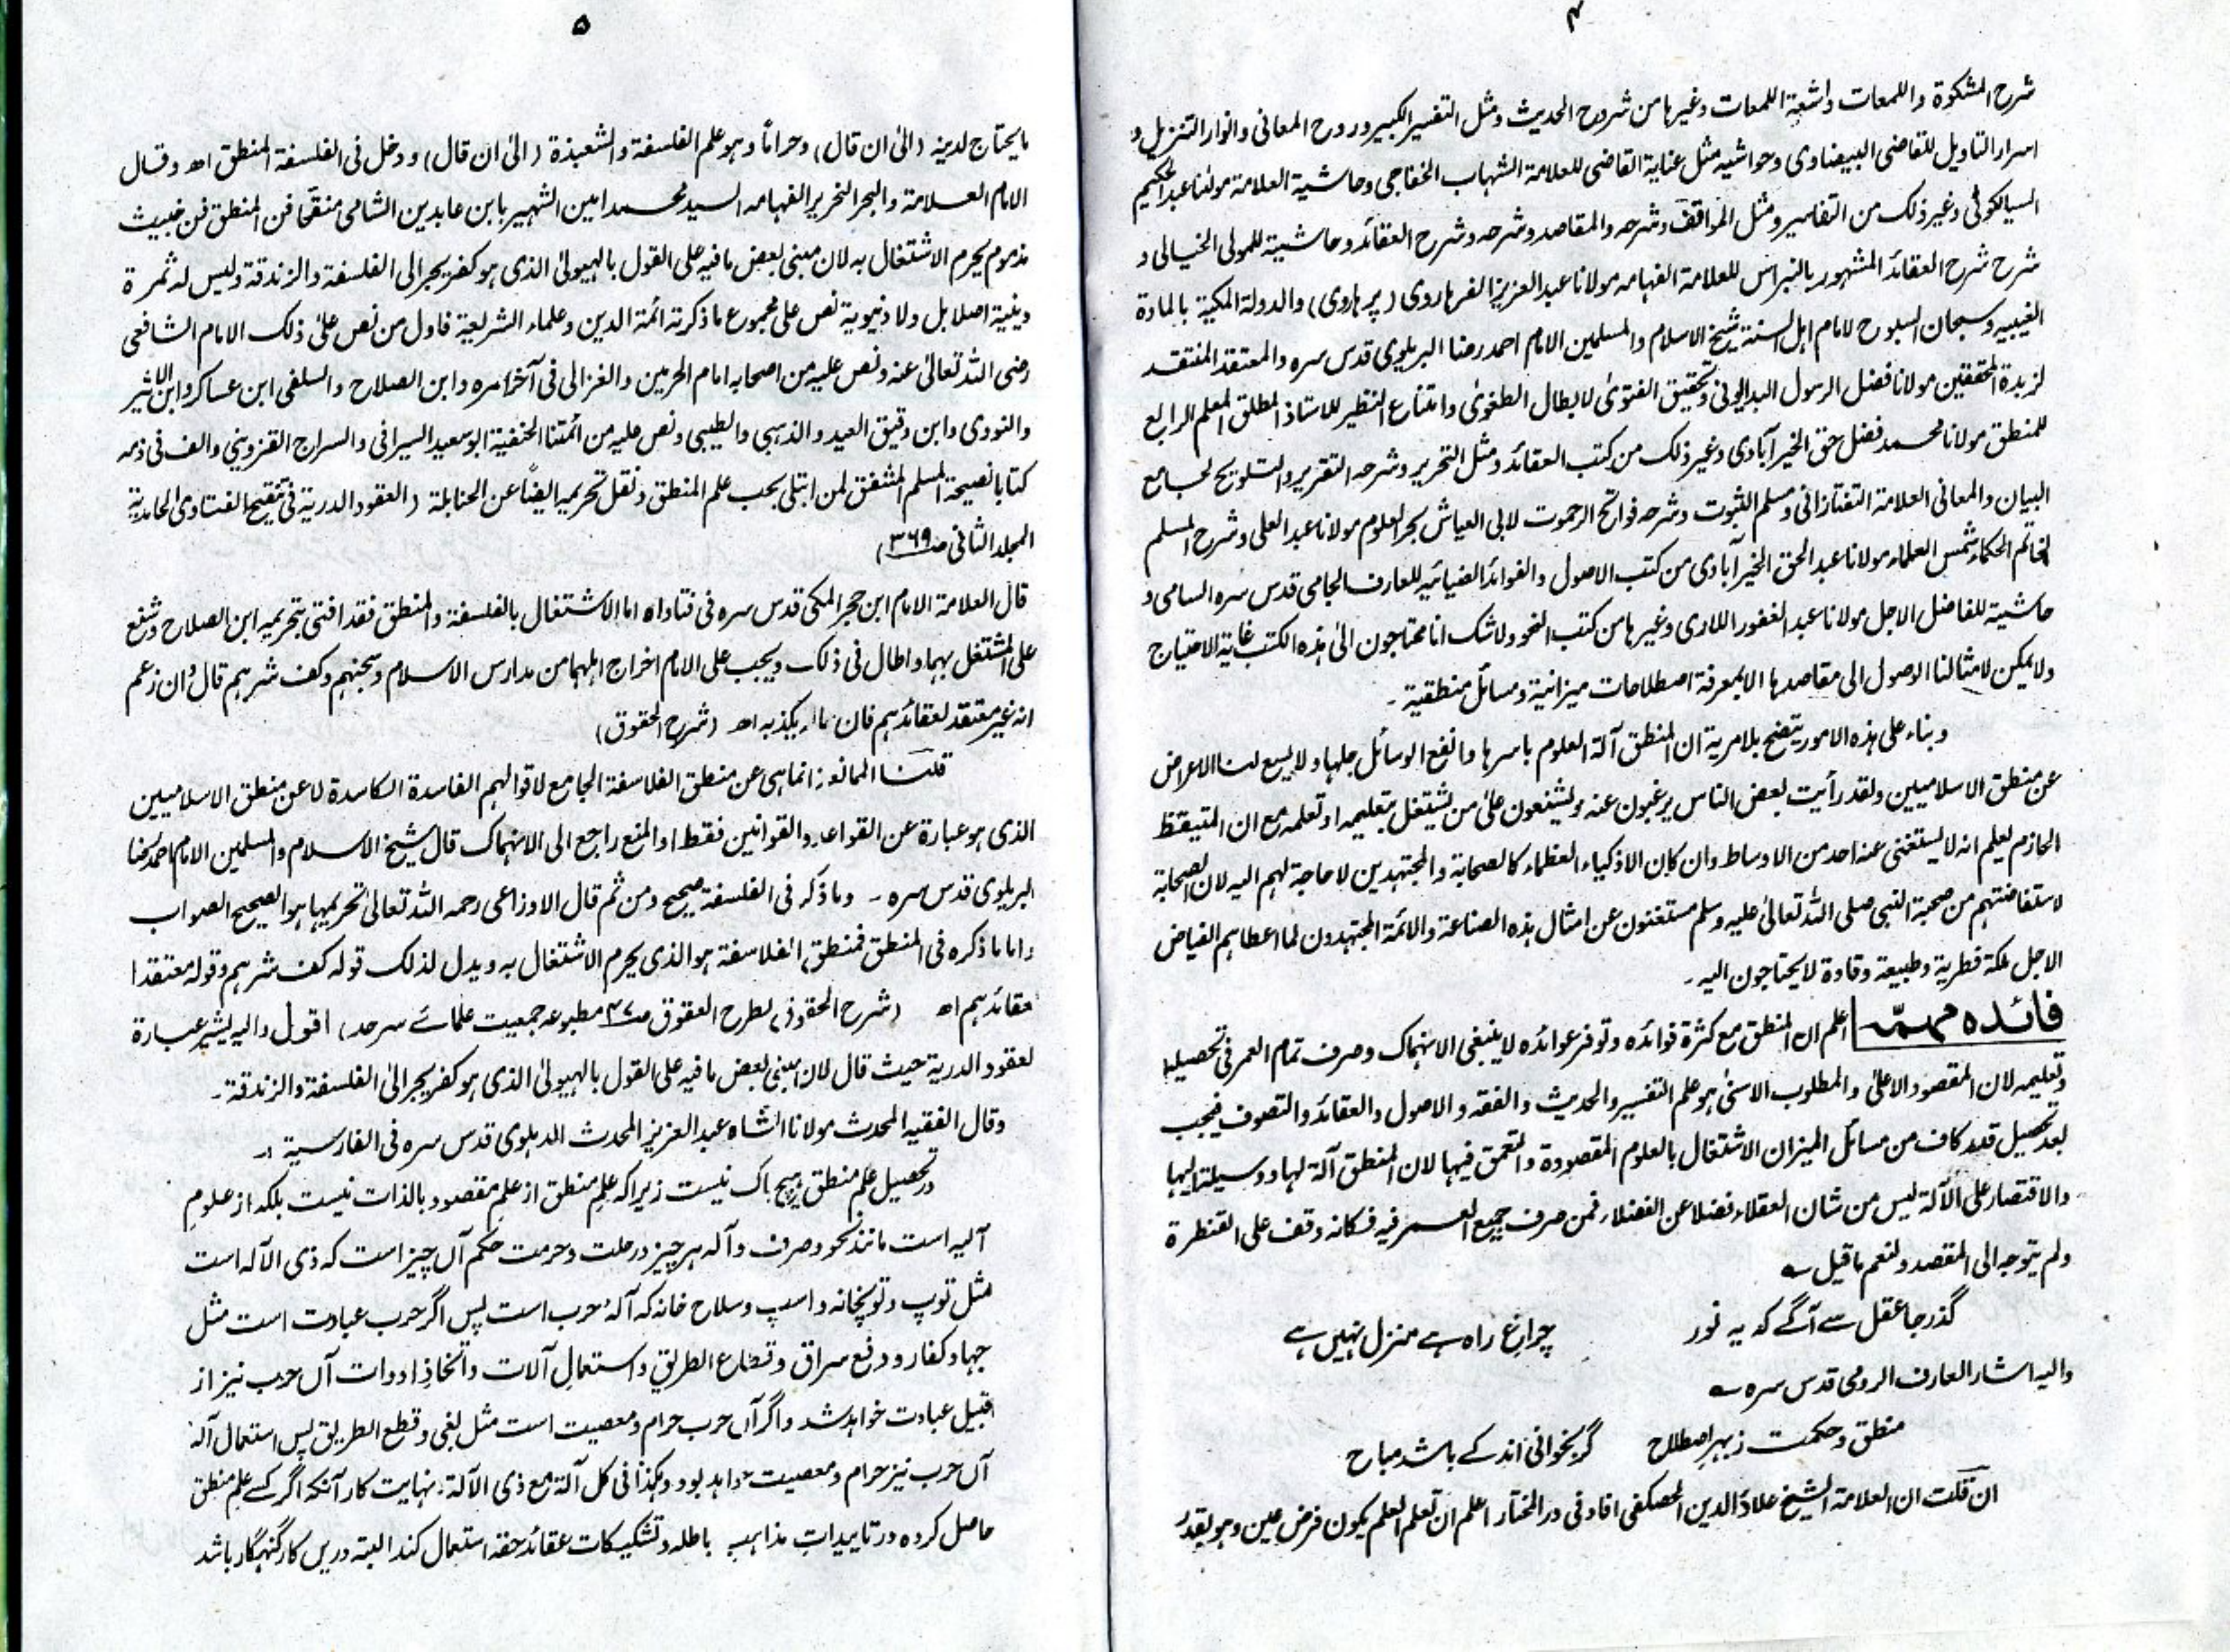 ۴
شرح المشکوۃ واللمعات واشعۃ اللمعات وغیرہا من شروح الحدیث ومثل التفسیر الکبیر وروح المعانی وانوار التنزیل و
اسرار التاویل للقاضی البیضاوی وحواشیہ مثل عنایۃ القاضی للعلامۃ الشہاب الخفاجی وحاشیۃ العلامۃ مولٰنا عبد الحکیم
السیالکوٹی وغیر ذلک من التفاسیر ومثل المواقف وشرحہ والمقاصد وشرحہ وشرح العقائد وحاشیۃ للمولی الخیالی و
شرح شرح العقائد المشہور بالنبراس للعلامۃ الفہامہ مولانا عبد العزیز الفرہاروی (پرہاروی) والدولۃ المکیۃ بالمادۃ
الغیبیہ وسبحان السبوح لامام اہل السنۃ شیخ الاسلام والمسلمین الامام احمد رضا البریلوی قدس سرہ والمعتقد المنتقد
لزبدۃ المحققین مولانا فضل الرسول البدایونی وتحقیق الفتوٰی لابطال الطغوٰی وامتناع النظیر للاستاذ المطلق المعلم الرابع
للمنطق مولانا محمد فضل حق الخیر آبادی وغیر ذلک من کتب العقائد ومثل التحریر وشرحہ التقریر والتلویح لجامع
البیان والمعانی العلامۃ التفتازانی ومسلم الثبوت وشرحہ فواتح الرحموت لابی العیاش بحر العلوم مولانا عبد العلی وشرح المسلم
لخاتم الحکماء شمس العلماء مولانا عبد الحق الخیر آبادی من کتب الاصول والفوائد الضیائیہ للعارف الجامی قدس سرہ السامی و
حاشیۃ للفاضل الاجل مولانا عبد الغفور اللاری وغیرہا من کتب النحو ولاشک انا محتاجون الیٰ ہذہ الکتب غایۃ الاحتیاج
ولا یمکن لامثالنا الوصول الی مقاصدہا الا بمعرفۃ اصطلاحات میزانیۃ ومسائل منطقیۃ۔
وبناء علی ہذہ الامور یتضح بلامریۃ ان المنطق آلۃ العلوم باسرہا وانفع الوسائل جلہا ولا یسع لنا الاعراض
عن منطق الاسلامیین ولقد رأیت بعض الناس یرغبون عنہ ویشنعون علیٰ من یشتغل بتعلیمہ او تعلمہ مع ان المتیقظ
الحازم یعلم انہ لا یستغنی عنہ احد من الاوساط وان کان الاذکیاء العظماء کالصحابۃ والمجتہدین لاحاجۃ لہم الیہ لان الصحابۃ
لاستفاضتہم من صحبۃ النبی صلی اللہ تعالیٰ علیہ وسلم مستغنون عن امثال ہذہ الصناعۃ والائمۃ المجتہدون لما اعطاہم الفیاض
الاجل ملکۃ فطریۃ وطبیعۃ وقادۃ لا یحتاجون الیہ۔
فائدہ مہمّہ اعلم ان المنطق مع کثرۃ فوائدہ وتوفر عوائدہ لا ینبغی الانہماک وصرف تمام العمر فی تحصیلہ
وتعلیمہ لان المقصود الاعلیٰ والمطلوب الاسنیٰ ہو علم التفسیر والحدیث والفقہ والاصول والعقائد والتصوف فیجب
بعد تحصیل قدر کاف من مسائل المیزان الاشتغال بالعلوم المقصودۃ والتعمق فیہا لان المنطق آلۃ لہا ووسیلۃ الیہا
والاقتصار علی الآلۃ لیس من شان العقلاء فضلا عن الفضلاء، فمن صرف جمیع العمر فیہ فکانہ وقف علی القنطرۃ
ولم یتوجہ الی المقصد ولنعم ما قیل ؎
گذر جا عقل سے آگے کہ یہ نور چراغِ راہ ہے منزل نہیں ہے
والیہ اشار العارف الرومی قدس سرہ ؎
منطق وحکمت زبہرِ اصطلاح گر بخوانی اندکے باشد مباح
ان قلت ان العلامۃ الشیخ علاؤ الدین الحصکفی افاد فی در المختار اعلم ان تعلم العلم یکون فرض عین وہو بقدر
۵
مایحتاج لدینہ (الیٰ ان قال) وحراماً وہو علم الفلسفۃ والشعبذۃ (الیٰ ان قال) ودخل فی الفلسفۃ المنطق اھ وقال
الامام العلامۃ والبحر النحریر الفہامہ السید محمد امین الشہیر بابن عابدین الشامی منقحا فن المنطق فن خبیث
مذموم یحرم الاشتغال بہ لان مبنی بعض ما فیہ علی القول بالہیولیٰ الذی ہو کفر یجر الی الفلسفۃ والزندقۃ ولیس لہ ثمرۃ
دینیۃ اصلا بل ولا دنیویۃ نص علی مجموع ما ذکرتہ ائمۃ الدین وعلماء الشریعۃ فاول من نص علیٰ ذلک الامام الشافعی
رضی اللہ تعالیٰ عنہ ونص علیہ من اصحابہ امام الحرمین والغزالی فی آخر امرہ وابن الصلاح والسلفی ابن عساکر وابن الاثیر
والنووی وابن دقیق العید والذہبی والطیبی ونص علیہ من ائمتنا الحنفیۃ ابو سعید السیرافی والسراج القزوینی والف فی ذمہ
کتابا نصیحۃ المسلم المشفق لمن ابتلی بحب علم المنطق ونقل تحریمہ ایضاً عن الحنابلۃ (العقود الدریۃ فی تنقیح الفتاوی الحامدیۃ
المجلد الثانی صـ۳۶۹)
قال العلامۃ الامام ابن حجر المکی قدس سرہ فی فتاواہ اما الاشتغال بالفلسفۃ والمنطق فقد افتی بتحریمہ ابن الصلاح وشنع
علی المشتغل بہما واطال فی ذلک ویجب علی الامام اخراج اہلہما من مدارس الاسلام وسجنہم وکف شرہم قال وان زعم
انہ غیر معتقد لعقائدہم فان حالہ یکذبہ اھ (شرح الحقوق)
قلنا الممانعۃ انما ہی عن منطق الفلاسفۃ الجامع لاقوالہم الفاسدۃ الکاسدۃ لا عن منطق الاسلامیین
الذی ہو عبارۃ عن القواعد والقوانین فقط او المنع راجع الی الانہماک قال شیخ الاسلام والمسلمین الامام احمد رضا
البریلوی قدس سرہ ۔ وما ذکرہ فی الفلسفۃ صحیح ومن ثم قال الاوزاعی رحمہ اللہ تعالیٰ تحریمہا ہو الصحیح الصواب
واما ما ذکرہ فی المنطق فمنطق الفلاسفۃ ہو الذی یحرم الاشتغال بہ ویدل لذلک قولہ کف شرہم وقولہ معتقدا
لعقائدہم اھ (شرح الحقوق لطرح العقوق صـ۴۷ مطبوعہ جمعیت علمائے سرحد) اقول والیہ یشیر عبارۃ
لعقود الدریۃ حیث قال لان مبنی بعض ما فیہ علی القول بالہیولیٰ الذی ہو کفر یجر الیٰ الفلسفۃ والزندقۃ۔
وقال الفقیہ المحدث مولانا الشاہ عبد العزیز المحدث الدہلوی قدس سرہ فی الفارسیۃ :۔
در تحصیل علم منطق ہیچ باک نیست زیرا کہ علم منطق از علم مقصود بالذات نیست بلکہ از علومِ
آلیہ است مانند نحو وصرف وآلہ ہر چیز در حلت وحرمت حکم آں چیز است کہ ذی الآلہ است
مثل توپ وتوپخانہ واسپ وسلاح خانہ کہ آلۂ حرب است پس اگر حرب عبادت است مثل
جہاد کفار ودفع سراق وقطاع الطریق واستعمالِ آلات واتخاذِ ادوات آں حرب نیز از
قبیل عبادت خواہد شد واگر آں حرب حرام ومعصیت است مثل بغی وقطع الطریق پس استعمال آلہ
آں حرب نیز حرام ومعصیت خواہد بود وہکذا فی کل آلۃ مع ذی الآلۃ، نہایت کار آنکہ اگر کسے علم منطق
حاصل کردہ در تاییدات مذاہب باطلہ وتشکیکات عقائد حقہ استعمال کند البتہ دریں کار گنہگار باشد